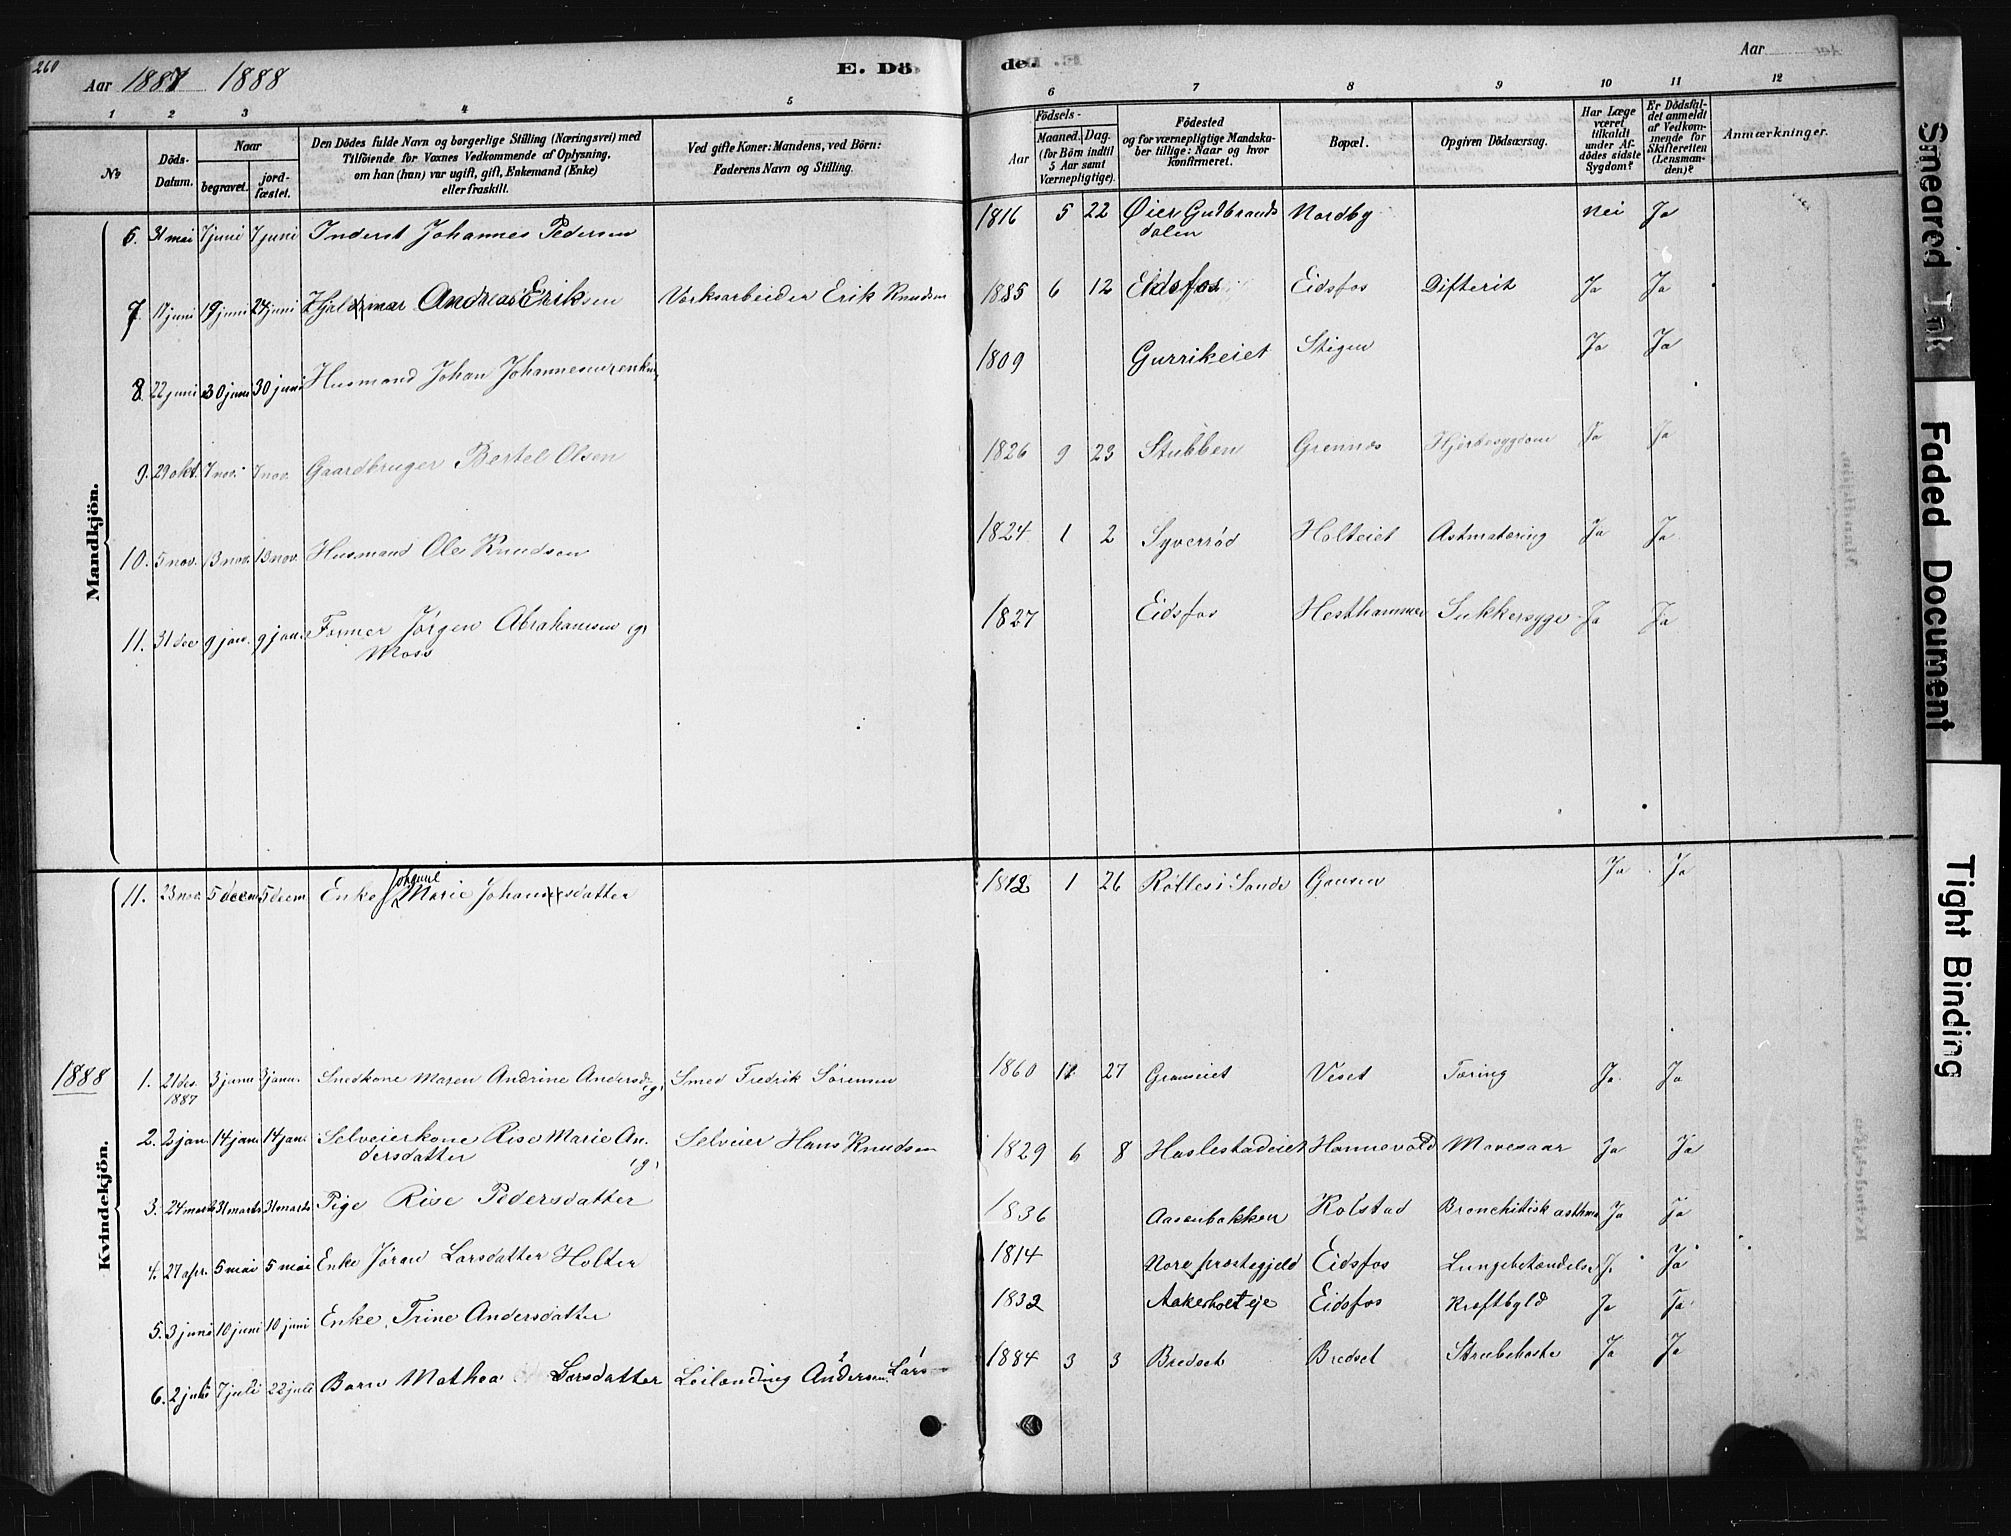 260
Aar 1887 1888
E. Dö-
de.
Aar
1 2 3 4 5 6 7 8 9 10 11 12
No
Döds-
Datum.
Naar
begravet.
jord-
fæstet.
Den Dödes fulde Navn og borgerlige Stilling (Næringsvei) med
Tilföiende for Voxnes Vedkommende af Oplysning,
om han (hun) var ugift, gift, Enkemand (Enke)
eller fraskilt.
Ved gifte Koner: Mandens, ved Börn:
Faderens Navn og Stilling.
Födsels-
Aar
Maaned. Dag.
(for Börn indtil
5 Aar samt
Værnepligtige).
Födested
og for værnepligtige Mandska-
ber tillige: Naar og hvor
konfirmeret.
Bopæl.
Opgiven Dödsaarsag.
Har Læge
været
tilkaldt
under Af-
dödes sidste
Sygdom?
Er Dödsfal-
det anmeldt
af Vedkom-
mende for
Skifteretten
(Lensman-
den)?
Anmærkninger.
Mandkjön.
6. 31 mai 7 juni 7 juni Inderst Johannes Pedersen 1816 5 22 Øier Gudbrands Nordby Nei Ja
dalen
7. 11 juni 19 juni 24 juni Hjalmar Andreas Eriksen Værksarbeider Erik Knudsen 1885 6 12 Eidsfos Eidsfos Difterit Ja Ja
8. 22 juni 30 juni 30 juni Husmand Johan 1809 Gurrikeiet Stigen Ja Ja
9. 29 okt. 7 nov. 7 nov. Gaardbruger Bertel Olsen 1826 9 23 Stubben Grennes Hjertesygdom Ja Ja
10. 5 nov. 13 nov. 13 nov. Husmand Ole Knudsen 1824 1 2 Syverrød Holteiet Astmatæring Ja Ja
11. 31 dec 9 jan. 9 jan. Former Jørgen Abrahamsen (g) 1827 Eidsfos Hesthammer Sukkersyge Ja Ja
Moss
11. 23 nov. 5 decem 5 decem Enke Johanne Marie Johansdatter 1812 1 26 Røttes i Sande Gausen Ja Ja
Kvindekjön.
1888 1. 21 des. 3 janu 3 janu. Smedkone Maren Andrine Andersd. (g) Smed Fredrik Sørensen 1860 11 27 Grauseiet Veset Tæring Ja Ja
1887
2. 2 jan. 14 jan. 14 jan. Selveierkone Rise Marie An- Selveier Hans Knudsen 1829 6 8 Haslestadeiet Hannevold Mavesaar Ja Ja
dersdatter (g)
3. 24 marts 31 marts 31 marts Pige Rise Pedersdatter 1836 Aasenbakken Kolstad Bronchitisk asthma Ja Ja
4. 27 apr. 5 mai 5 mai Enke Jøran Larsdatter Holter 1814 Nore præstegjeld Eidsfos Lungebetændelse J. Ja
5. 3 juni 10 juni 10 juni Enke Trine Andersdatter 1832 Aakerholt eje Eidsfos Kræftbyld Ja Ja
6. 2 juli 7 juli 22 juli Barn Mathea Larsdatter Leilænding Andersen Lars 1884 3 3 Bredset Bredset Strubehoste Ja Ja
Smeared Ink
Faded Document
Tight Binding